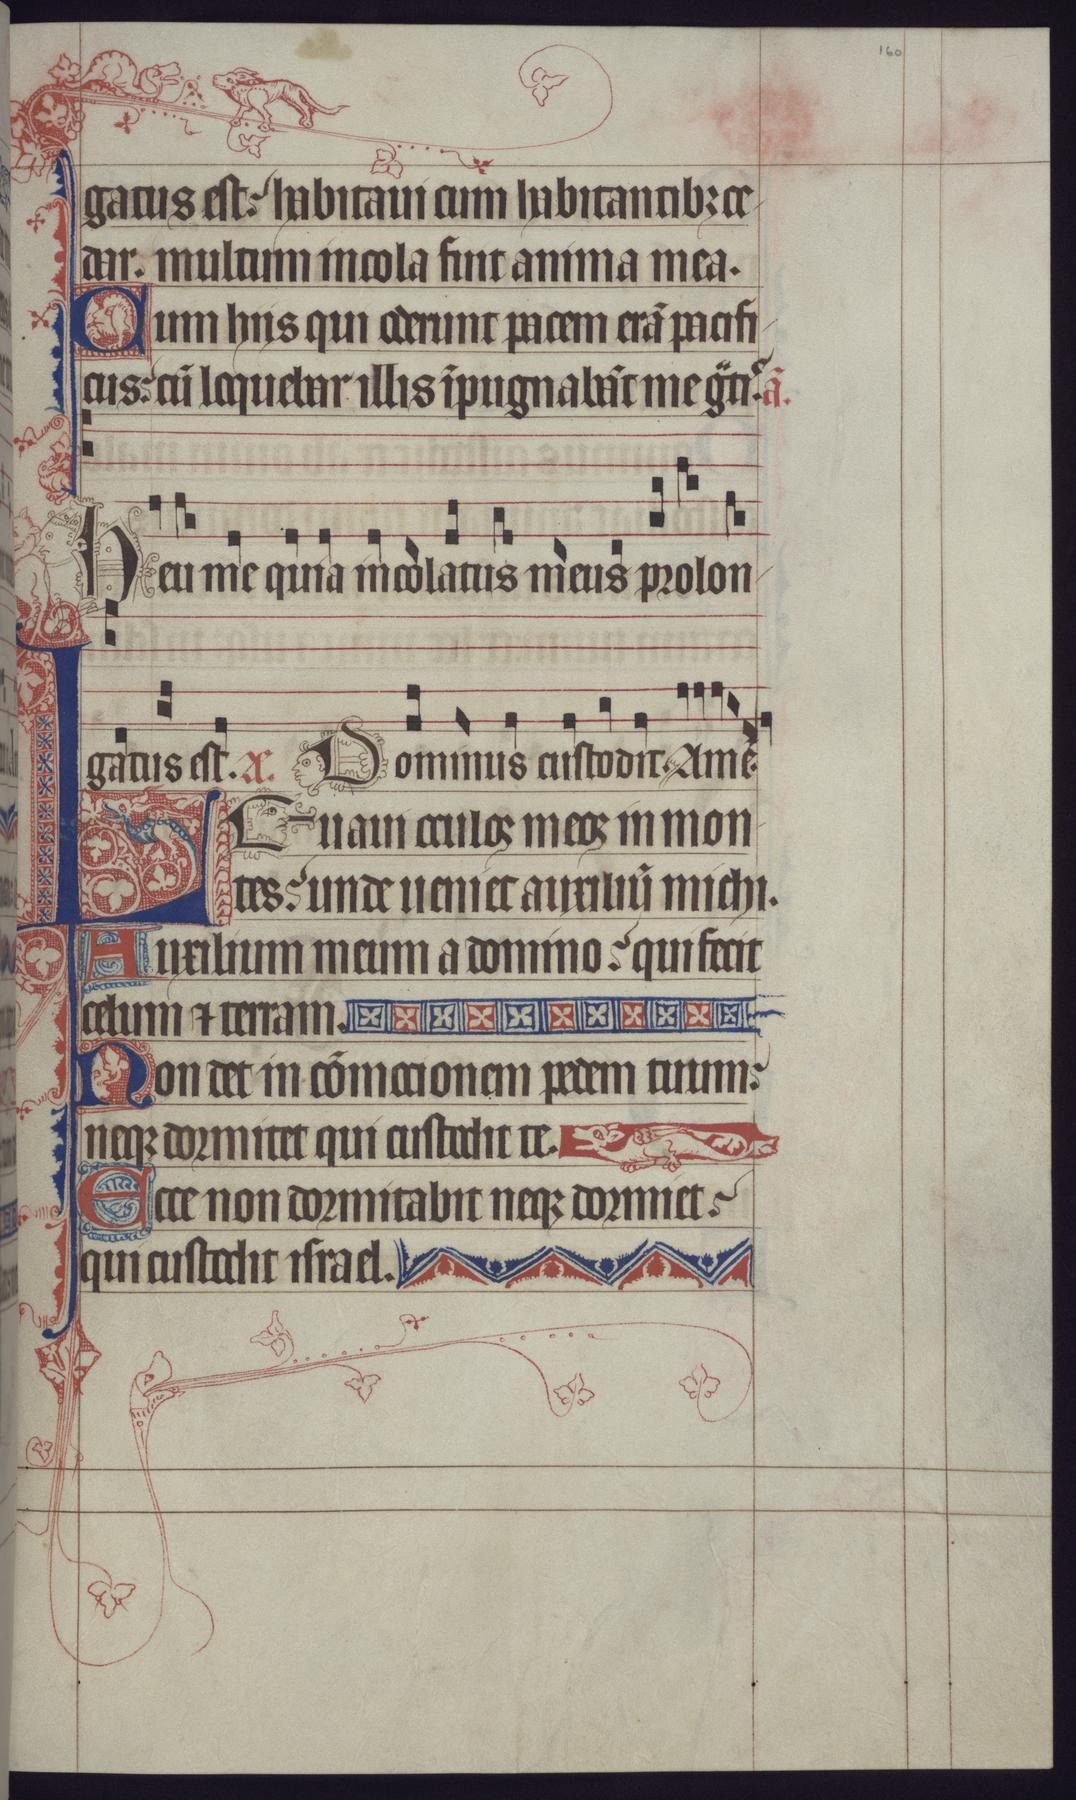 160
gatus est: habitaui cum habitantibꝫ ce
dar. multum incola fuit anima mea.
Cum hiis qui oderunt pacem erā pacifi
cus: cū loquebar illis īpugnabāt me gͣti. ā.
Heu me quia incolatus meus prolon
gatus est. Dominus custodit. Amē
Leuaui oculos meos in mon
tes: unde ueniet auxiliū michi.
Auxilium meum a domino: qui fecit
celum ⁊ terram.
Non det in cōmocionem pedem tuum:
neqꝫ dormitet qui custodit te.
Ecce non dormitabit neqꝫ dormiet:
qui custodit israel.